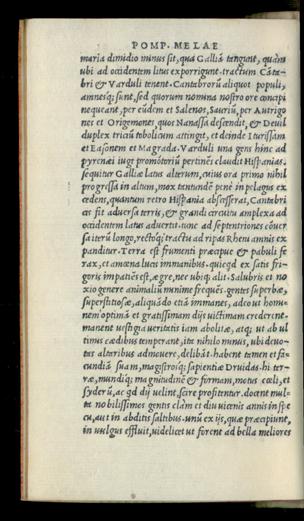 POMP. MELAE
maria dimidio minus sit, qua Galliã tangunt, quàm
ubi ad occidentem litus exporrigunt. tractum Cãta-
bri & Varduli tenent. Cantabrorũ aliquot populi,
amnesq; sunt, sed quorum nomina nostro ore concipi
nequeant. per eũdem et Salenos, Sauriũ, per Autrigo
nes et Origenones quos Nanasa descendit, & Deuil
duplex triciũ tobolicum attingit, et deinde Iturissam
et Easonem et Magrada. Varduli una gens hinc ad
pyrenæi iugi promõtoriũ pertinẽs claudit Hispanias.
sequitur Galliæ latus alterum, cuius ora primo nihil
progressa in altum, mox tantundẽ penè in pelagus ex
cedens, quantum retro Hispania abscesserat, Cantabri
cis fit aduersa terris, & grandi circuitu amplexa ad
occidentem latus aduertit. tunc ad septentriones cõuer
sa iterũ longo, rectóq; tractu ad ripas Rheni amnis ex
panditur. Terra est frumenti præcipue & pabuli fe
rax, et amœna lucis immanibus. quicqd ex satis fri-
goris impatiẽs est, ægre, nec ubiq; alit. Salubris et no
xio genere animaliũ minime frequẽs. gentes superbæ,
superstitosæ, aliquãdo etiã immanes, adeo ut homi-
nem optimã et gratissimam dijs uictimam crederent.
manent uestigia ueritatis iam abolitæ, atq; ut ab ul
timis cædibus temperant, ita nihilo minus, ubi deuo-
tos altaribus admouere, delibãt. habent tamen et fa-
cundiã suam, magistrosq; sapientiæ Druidas. hi ter-
ræ, mundiq; magnitudinẽ & formam, motus cœli, et
syderũ, ac qd dij uelint, scire profitentur. docent mul-
ta nobilissimos gentis clàm et diu uicenis annis in spe
cu, aut in abditis saltibus. unũ ex ijs, quæ præcipiunt,
in uulgus effluit, uidelicet ut forent ad bella meliores